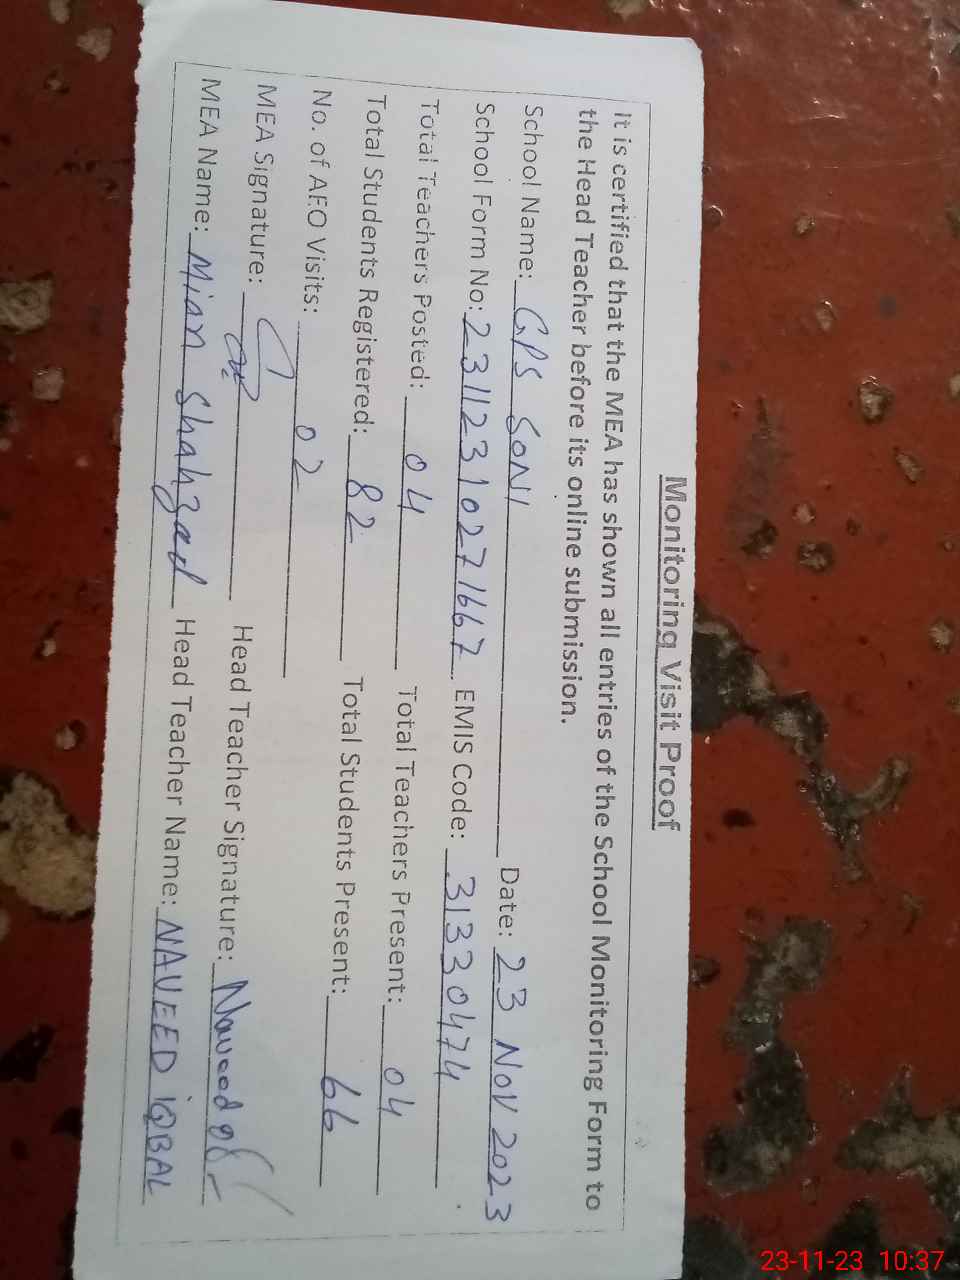 Monitoring Visit Proof
It is certified that the MEA has shown all entries of the School Monitoring Form to
the Head Teacher before its online submission.
School Name: GPS SONI Date: 23 NOV 2023
School Form No: 23112310271667 EMIS Code: 31330474
Total Teachers Posted: 04 Total Teachers Present: 04
Total Students Registered: 82 Total Students Present: 66
No. of AEO Visits: 02
MEA Signature: Head Teacher Signature: Naveed
MEA Name: Mian Shahzad Head Teacher Name: NAVEED iQBAL
23-11-23 10:37